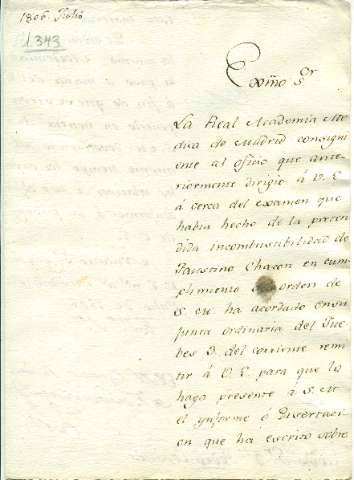 1806. Julio
1343
Exmo Sor
La Real Academia Me
dica de Madrid consigui
ente al oficio que ante
riormente dirigio á V. E.
á cerca del examen que
habia hecho de la preten
dida incombustibilidad de
Faustino Chacon en cum
plimiento de orden de
S. M. ha acordado en su
junta ordinaria del Jue
bes 3. del corriente remi
tir á V. E. para que lo
haga presente á S. M.
el ynforme ó Disertaci
on que ha escrito sobre